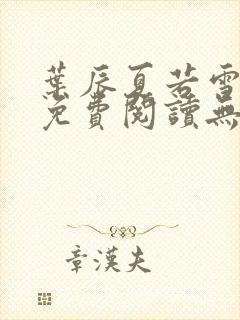 葉辰夏若雪
免費閱讀無
章漢夫